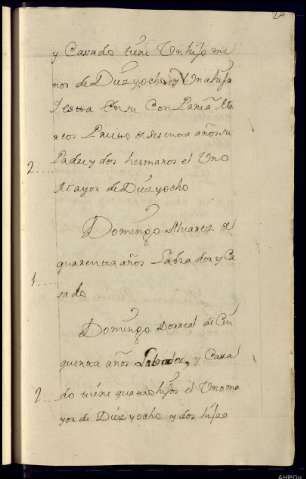 y Casado tiene Un hijo me
nor de Diez yocho, y Una hija
y esta en su Compania
reos de sesenta años su
Padre y dos hermanos el Uno
2
Mayor de Diez yocho
Domingo Alvarez de
quarenta años Labrador y Ca
1
sado
Domingo de Cin
quenta años Labrador, y Casa
2
do tiene quatro hijos el Uno ma
yor de Diez yocho y dos hijas